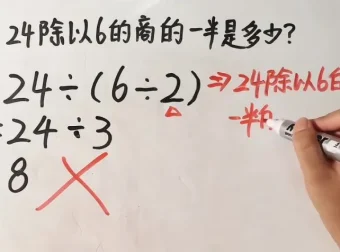 24除以6的商的一半是多少?
24÷(6÷2)⇒24除以6的
=24÷3
一半
8